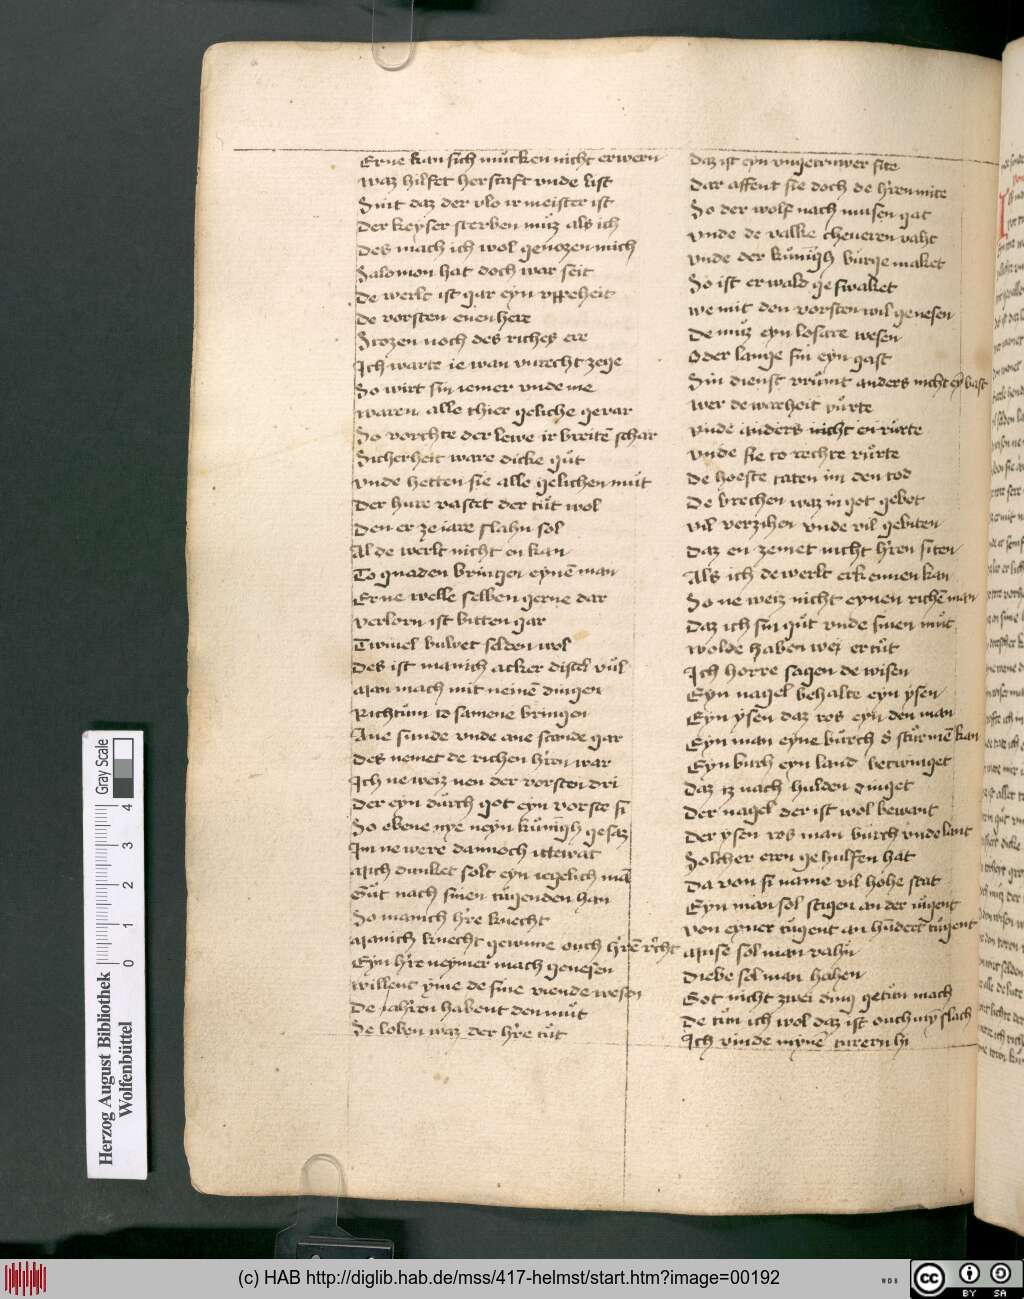 Erne kan sich mucken nicht erwern
waz hilfet herscaft vnde list
Sint daz der vlo ir meister ist
Der keyser sterben můz als ich
Des mach ich wol genozen mich
Salomon hat doch war seit
De werlt ist gar eyn vppeheit
De vorsten euen here
Stozen noch des riches ere
Ich warte ie wan vnrecht zege
So wirt sin iemer vnde me
waren alle thier geliche gevar
So vorchte der lewe ir breitē schar
Sicherheit ware dicke gůt
vnde hetten sie alle gelichen můt
Der hure rastet der tůt wol
Den er ze iare slahn sol
Al de werlt nicht en kan
To gnaden bringen eynē man
Erne welle selben gerne dar
verlorn ist bitten gar
Twiuel buwet selden wol
Des ist manich acker distel vůl
Man mach mit neinē dingen
Richtům to samene bringen
Ane sunde vnde ane scande gar
Des nemet de richen hʼrn war
Ich ne weiz nen der vorsten dri
Der eyn důrch got eyn vorste si
So ebene nye neyn kůnigh gesaz
Im ne were dannoch ittewat
Mich dunket solt eyn iegelich mā
Gůt nach sinen tůgenden han
So manich hʼre knecht
Manich knecht gewnne ouch hʼrē rʼcht
Eyn hʼre neymer mach genesen
willent yme de sine viende wesen
De iahʼren habent den můt
Se loben waz der hʼre tůt
Daz ist eyn vngetruwer site
Dar affent sie doch de hʼren mite
So der wolf nach musen gat
vnde de valke cheueren vaht
vnde der kůnigh burge maket
So ist er wald geswaket
we mit den vorsten wil genesen
De můz eyn losare wesen
Oder lange sin eyn gast
Sin dienst vrůmt anders nicht eȳ bast
wer de warheit vůrte
vnde anders nicht en růrte
vnde sie to rechte vůrte
De hoeste taten im den tod
De brechen waz in got gebot
vil verzihen vnde vil gebiten
Daz en zemet nicht hʼren siten
Als ich de werlt erkennen kan
So ne weiz nicht eynen richē man
Daz ich sin gůt vnde sinen můt
wolde haben wez er tůt
Ich horre sagen de wisen
Eyn nagel behalte eyn ysen
Eyn ysen daz ros eyn den man
Eyn man eyne bůrch d' stůrmē kan
Eyn burch eyn land betwinget
Daz iz nach hulden dinget
Der nagel der ist wol bewant
Der ysen ros man burch vnde lant
Solcher eren gehulfen hat
Da von si name vil hohe stat
Eyn man sol stigen an der iůgent
von eyner tůgent an hūdert tůgent
Musē sol man vahn
Diebe sol man hahen
Got nicht zwei ding getůn mach
De tůn ich wol daz ist ouch my slach
Ich vinde mynē turern hi
Herzog August Bibliothek
Wolfenbüttel
Gray Scale
0 1 2 3 4
(c) HAB http://diglib.hab.de/mss/417-helmst/start.htm?image=00192
WDB
cc BY SA